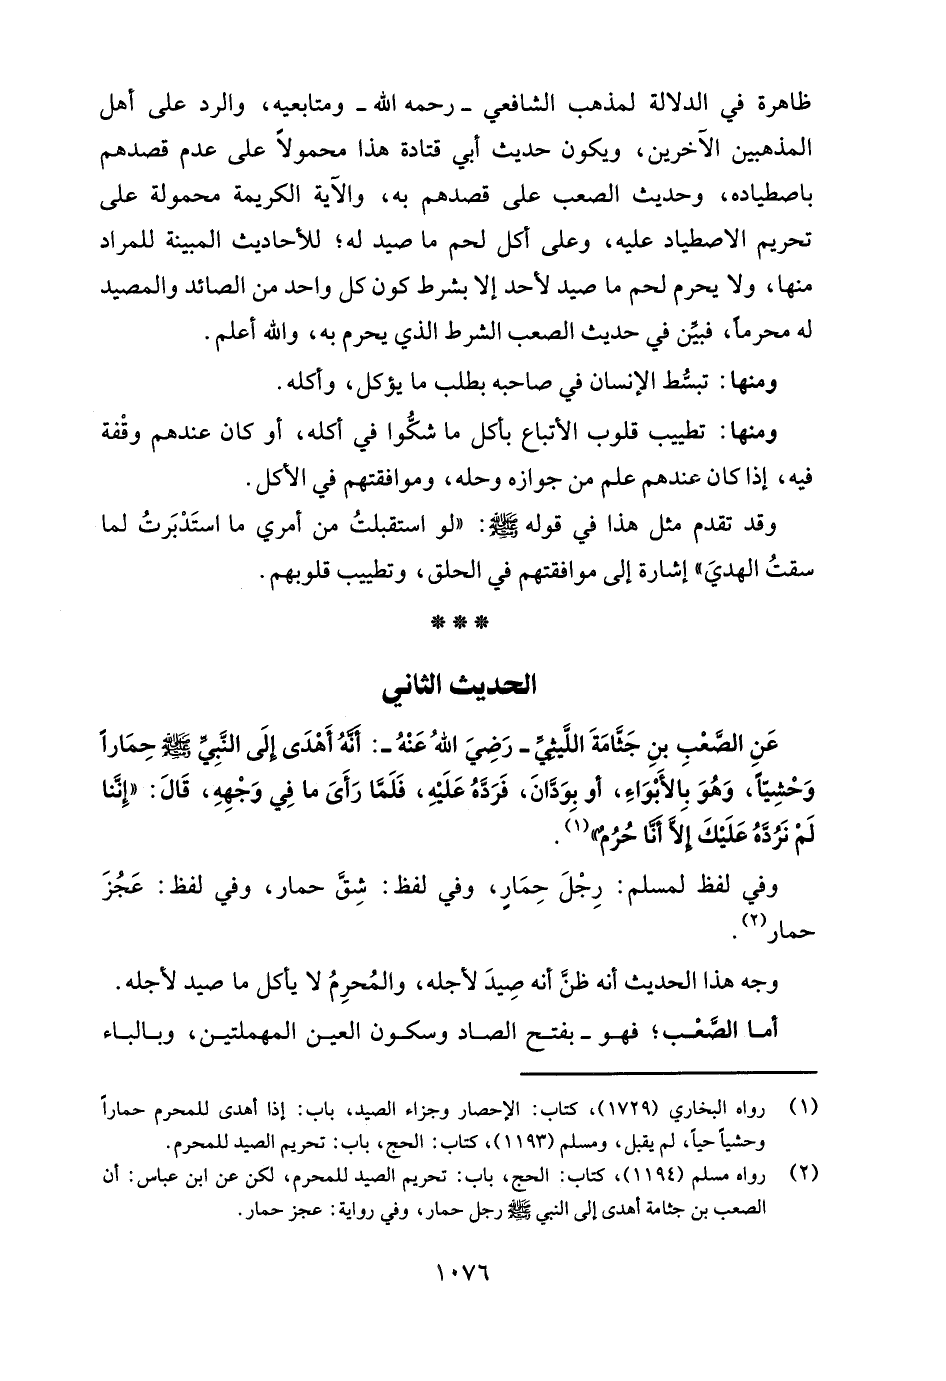 ظاهرة في الدلالة لمذهب الشافعي ـ رحمه الله ـ ومتابعيه، والرد على أهل
المذهبين الآخرين، ويكون حديث أبي قتادة هذا محمولاً على عدم قصدهم
باصطياده، وحديث الصعب على قصدهم به، والآية الكريمة محمولة على
تحريم الاصطياد عليه، وعلى أكل لحم ما صيد له؛ للأحاديث المبينة للمراد
منها، ولا يحرم لحم ما صيد لأحد إلا بشرط كون كل واحد من الصائد والمصيد
له محرماً، فبيِّن في حديث الصعب الشرط الذي يحرم به، والله أعلم.
ومنها: تبسُّط الإنسان في صاحبه بطلب ما يؤكل، وأكله.
ومنها: تطييب قلوب الأتباع بأكل ما شكُّوا في أكله، أو كان عندهم وقْفة
فيه، إذا كان عندهم علم من جوازه وحله، وموافقتهم في الأكل.
وقد تقدم مثل هذا في قوله ﷺ: «لو استقبلتُ من أمري ما استَدْبَرتُ لما
سقتُ الهديَ» إشارة إلى موافقتهم في الحلق، وتطييب قلوبهم.
* * *
الحديث الثاني
عَنِ الصَّعْبِ بنِ جَثَّامَةَ اللَّيثِيِّ ـ رَضِيَ اللهُ عَنْهُ ـ: أَنَّهُ أَهْدَى إِلَى النَّبِيِّ ﷺ حِمَاراً
وَحْشِيّاً، وَهُوَ بِالأَبْوَاءِ، أو بِوَدَّانَ، فَرَدَّهُ عَلَيْهِ، فَلَمَّا رَأَى ما فِي وَجْهِهِ، قَالَ: «إِنَّنا
لَمْ نَرُدَّهُ عَلَيْكَ إِلاَّ أَنَّا حُرُمٌ»(١).
وفي لفظ لمسلم: رِجْلَ حِمَارٍ، وفي لفظ: شِقَّ حمار، وفي لفظ: عَجُزَ
حمار(٢).
وجه هذا الحديث أنه ظنَّ أنه صِيدَ لأجله، والمُحرِمُ لا يأكل ما صيد لأجله.
أما الصَّعْب؛ فهو ـ بفتح الصاد وسكون العين المهملتين، وبالباء
(١) رواه البخاري (١٧٢٩)، كتاب: الإحصار وجزاء الصيد، باب: إذا أهدى للمحرم حماراً
وحشياً حياً، لم يقبل، ومسلم (١١٩٣)، كتاب: الحج، باب: تحريم الصيد للمحرم.
(٢) رواه مسلم (١١٩٤)، كتاب: الحج، باب: تحريم الصيد للمحرم، لكن عن ابن عباس: أن
الصعب بن جثامة أهدى إلى النبي ﷺ رجل حمار، وفي رواية: عجز حمار.
١٠٧٦